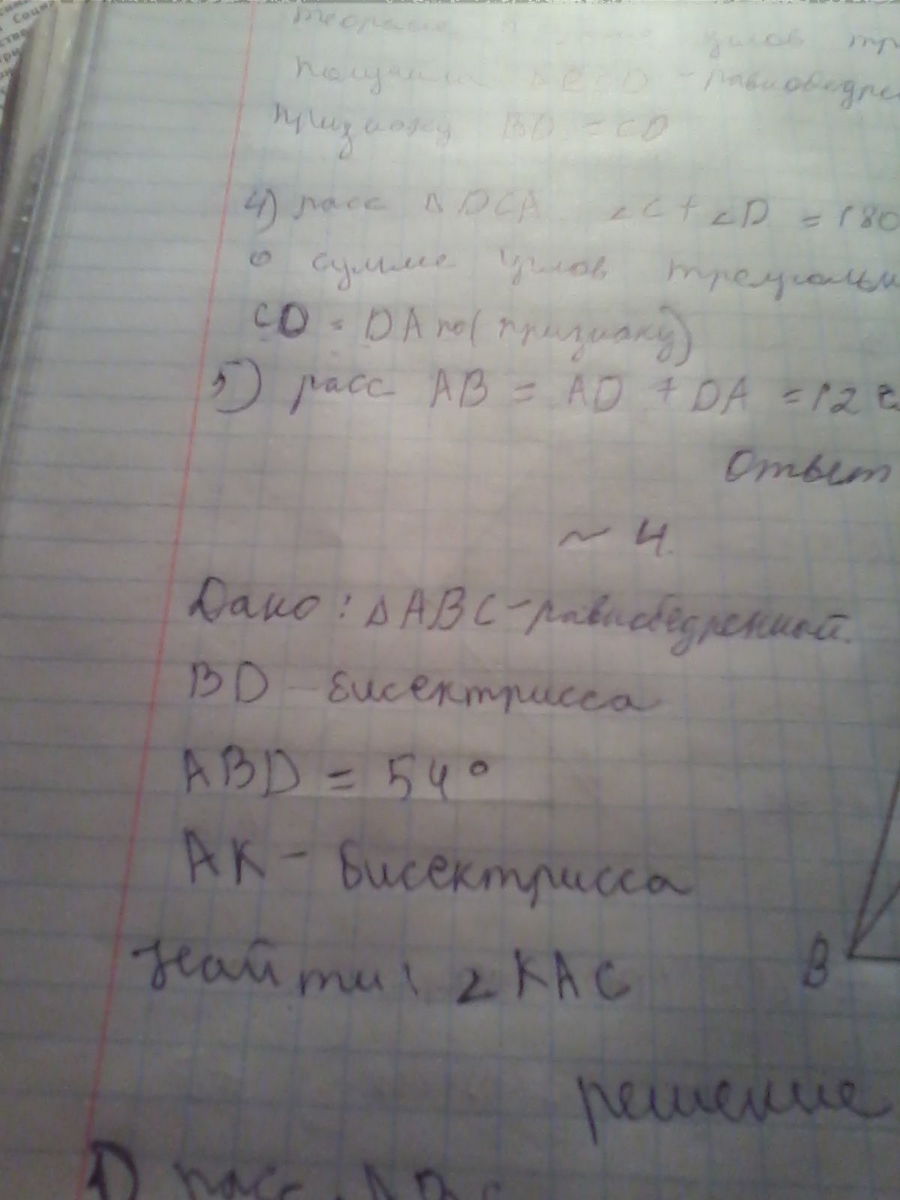 углов
- равнобедре
признаку BD = CD
4) расс △ DCA ∠C + ∠D = 180
о сумме углов треугольн
CD = DA по (признаку)
5) расс AB = AD + DA = 12
Ответ
~ 4.
Дано: △ABC - равнобедренный.
BD - бисектрисса
ABD = 54°
AK - бисектрисса
Найти: ∠KAC
B
решение
1) расс